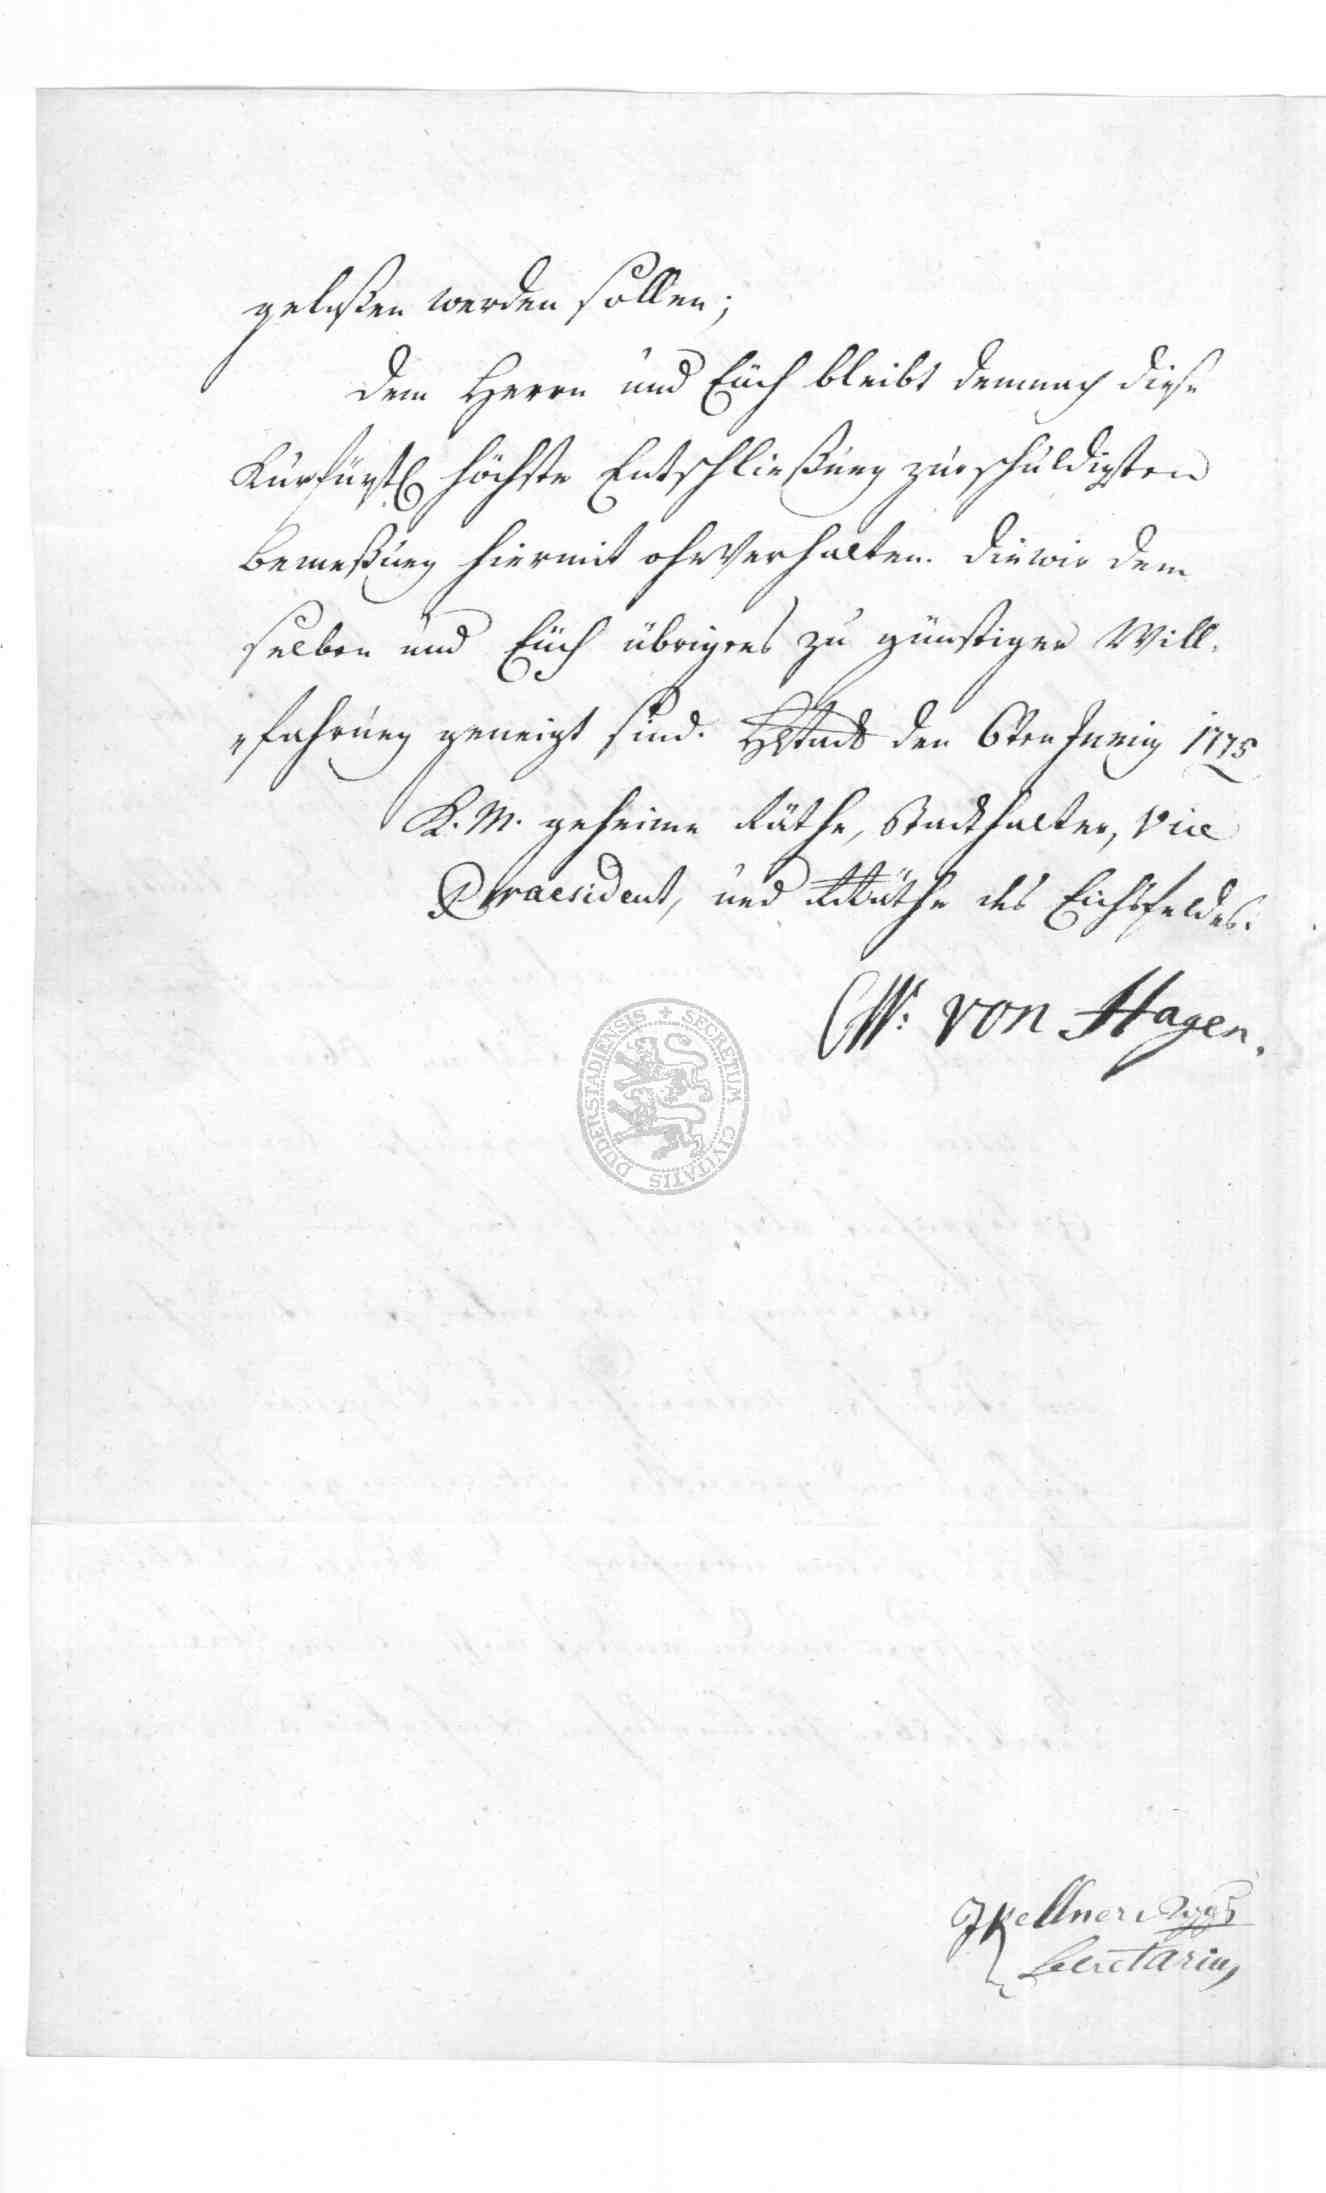 gelaßen werden sollen;
Dem Herrn und Euch bleibt demnach diese
Kurfürstl höchste Entschließung zur schuldigsten
Bemeßung hiermit ohnverhalten. Die wir dem
selben und Euch übrigens zu günstiger Will-
„fahrung geneigt sind. HStadt den 6ten Junig 1775
K. M. geheime Räthe, Stadthalter, Vice
Praesident, und Räthe des Eichsfeldes.
CW: von Hagen.
SECRETUM CIVITATIS DUDERSTADIENSIS
JKellner
Secretarius